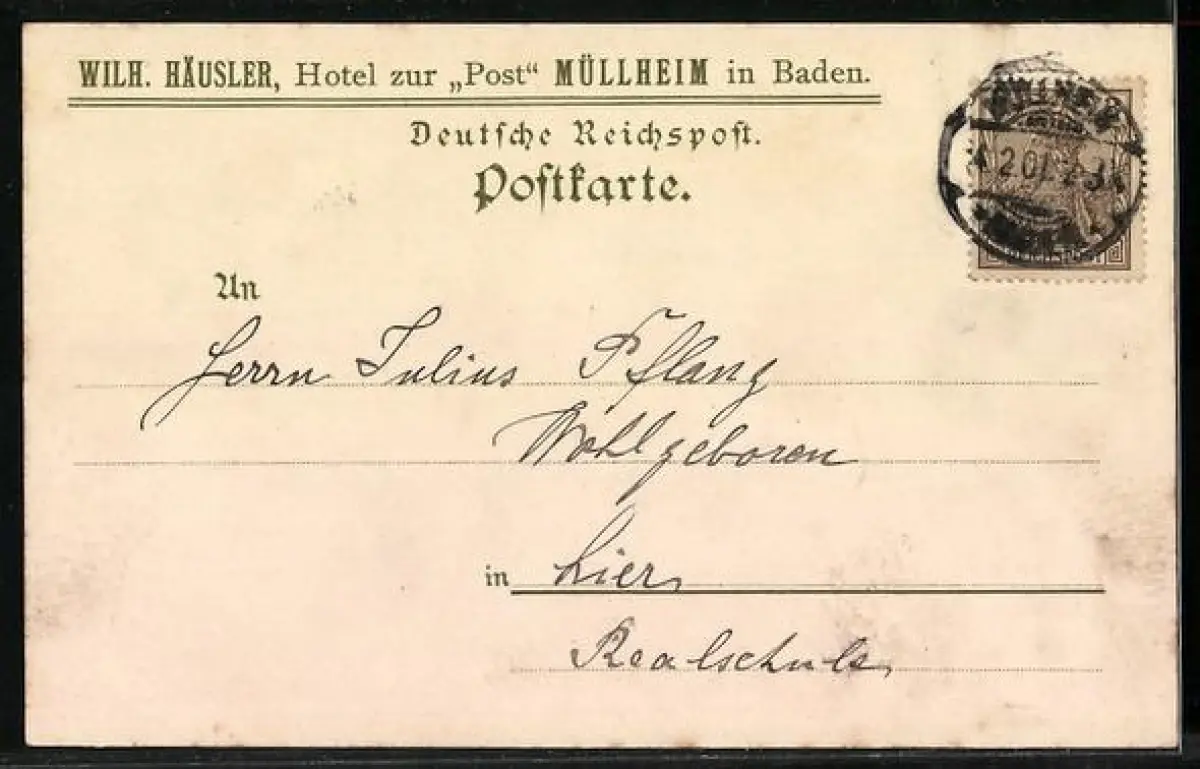 WILH. HÄUSLER, Hotel zur „Post“ MÜLLHEIM in Baden.
Deutsche Reichspost.
Postkarte.
An
Herrn Julius Pflang
Wohlgeboren
in hier,
Realschule,
REICHSPOST